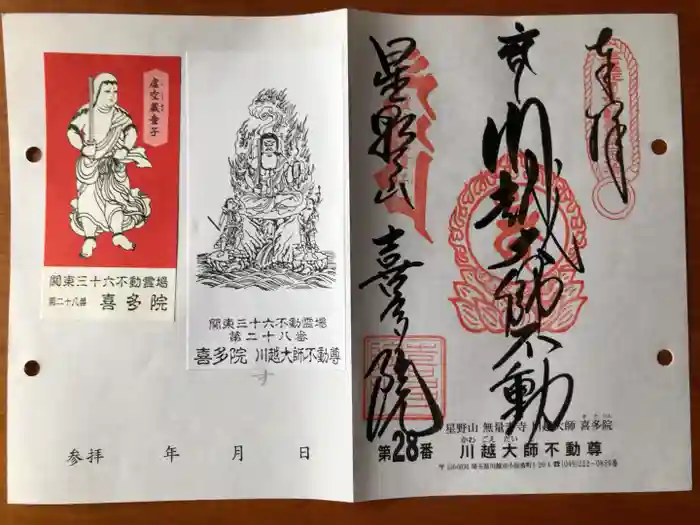 虚空蔵童子
関東三十六不動霊場
第二十八番 喜多院
関東三十六不動霊場
第二十八番
喜多院 川越大師不動尊
参拝 年 月 日
奉拝
川越大師不動
星野山 喜多院
星野山 無量寿寺 川越大師 喜多院
きたいん
かわごえだい
第28番 川越大師不動尊